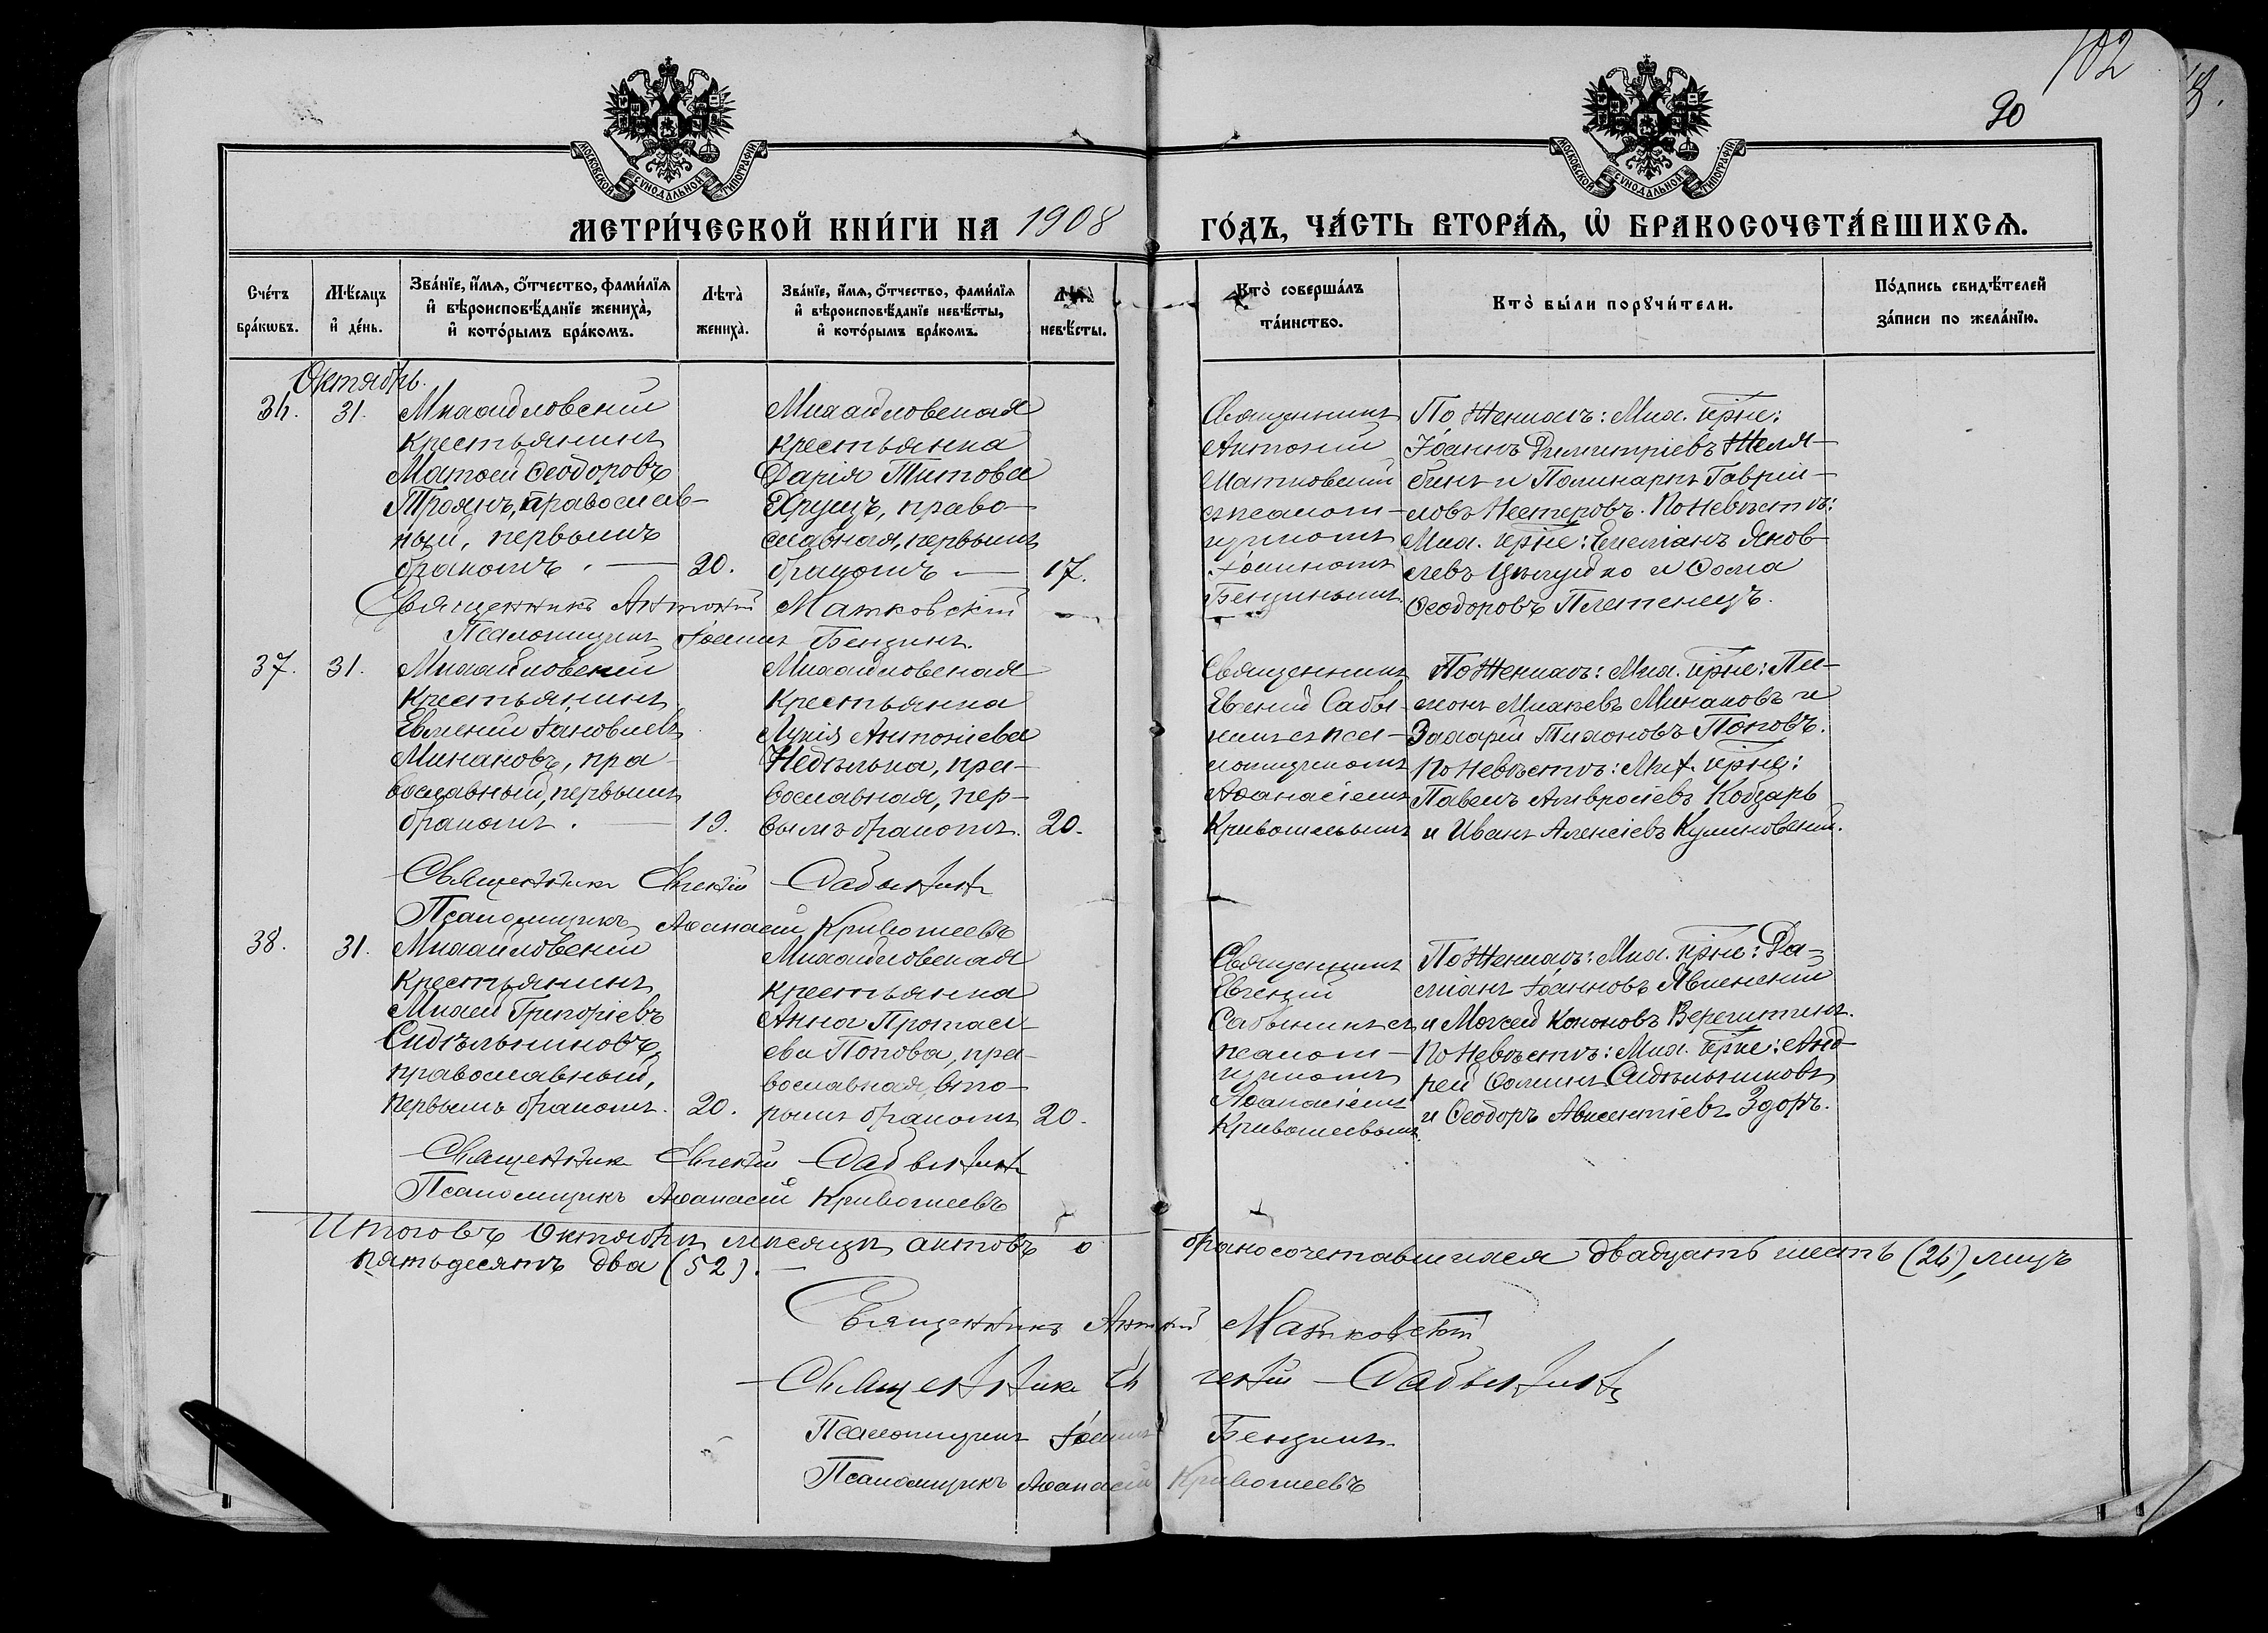 102
90
МОСКОВСКОЙ СУНОДАЛЬНОЙ ТИПОГРАФІИ
МОСКОВСКОЙ СУНОДАЛЬНОЙ ТИПОГРАФІИ
МЕТРИ́ЧЕСКОЙ КНИ́ГИ НА 1908 ГО́ДЪ, ЧА́СТЬ ВТОРА́Ѧ, Ѡ҆ БРАКОСОЧЕТА́ВШИХСѦ.
Сче́тъ бра́кѡвъ.
Мѣ́сяцъ и҆ де́нь.
Зва́нїе, и҆́мѧ, ѻ҆́тчество, фами́лїѧ
и҆ вѣроисповѣ́данїе жениха̀,
и҆ кото́рымъ бра́комъ.
Лѣта̀ жениха̀.
Зва́нїе, и҆́мѧ, ѻ҆́тчество, фами́лїѧ
и҆ вѣроисповѣ́данїе невѣ́сты,
и҆ кото́рымъ бра́комъ.
Лѣта̀ невѣ́сты.
Кто̀ соверша́лъ
та́инство.
Кто̀ бы́ли порꙋчи́тели.
По́дпись свидѣ́телей
за́писи по жела́нїю.
Октябрь.
36. 31.
Михайловскій
крестьянинъ
Матѳей Ѳеодоровъ
Троянъ, православ-
ный, первымъ
бракомъ. — 20.
Михайловская
крестьянка
Дарія Титова
Хрущъ, право-
славная, первымъ
бракомъ — 17.
Священникъ
Антоній
Матковскій
съ псалом-
щикомъ
Іоанномъ
Бенцинымъ.
По Женихѣ: Мих. крне:
Іоаннъ Димитріевъ Желя-
бинъ и Поликарпъ Гаврии-
ловъ Нестеровъ. По Невѣстѣ:
Мих. крне: Емеліанъ Яков-
левъ Цѣлуйко и Ѳома
Ѳеодоровъ Плетенецъ.
Священникъ Антоній Матковскій
Псаломщикъ Іоаннъ Бенцинъ.
37. 31.
Михайловскій
крестьянинъ
Евменій Іаковлевъ
Минаковъ, пра-
вославный, первымъ
бракомъ. — 19.
Михайловская
крестьянка
Лукія Антоніева
Недѣлька, пра-
вославная, пер-
вымъ бракомъ. 20.
Священникъ
Евгеній Сабы-
нинъ съ псал-
омщикомъ
Аѳанасіемъ
Кривошеевымъ
По Женихѣ: Мих. крне: Пи-
менъ Михеевъ Минаковъ и
Захарій Тихоновъ Поповъ.
По Невѣстѣ: Мих. крне:
Павелъ Амвросіевъ Кобзарь
и Иванъ Алексіевъ Куликовскій.
Священникъ Евгеній Сабынинъ
Псаломщикъ Аѳанасій Кривошеевъ
38. 31.
Михайловскій
крестьянинъ
Михей Григоріевъ
Сидѣльниковъ,
православный,
первымъ бракомъ. 20.
Михайловская
крестьянка
Анна Протаси-
ева Попова, пра-
вославная, вто-
рымъ бракомъ 20.
Священникъ
Евгеній
Сабынинъ съ
псалом-
щикомъ
Аѳанасіемъ
Кривошеевымъ.
По Женихѣ: Мих. крне: Да-
міанъ Іоанновъ Явленскій
и Моѵсей Кононовъ Верегитинъ.
По Невѣстѣ: Мих. крне: Анд-
рей Ѳоминъ Сидѣльниковъ
и Ѳеодоръ Авксентіевъ Здоръ.
Священникъ Евгеній Сабынинъ
Псаломщикъ Аѳанасій Кривошеевъ
Итого въ Октябрѣ мѣсяцѣ актовъ о бракосочетавшихся двадцать шесть (26), лицъ
пятьдесятъ два (52). —
Священникъ Антоній Матковскій
Священникъ Евгеній Сабынинъ
Псаломщикъ Іоаннъ Бенцинъ.
Псаломщикъ Аѳанасій Кривошеевъ